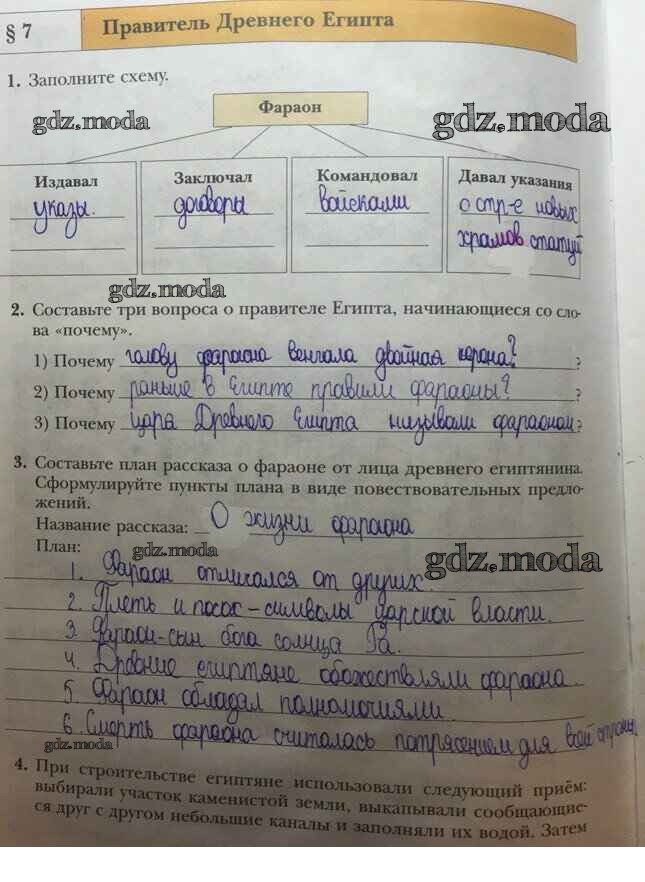 § 7 Правитель Древнего Египта
1. Заполните схему.
Фараон
gdz.moda gdz.moda
Издавал Заключал Командовал Давал указания
указы. договоры войсками о стр-е новых
храмов статуй
gdz.moda
2. Составьте три вопроса о правителе Египта, начинающиеся со сло-
ва «почему».
1) Почему голову фараона венчала двойная корона? ?
2) Почему раньше в Египте правили фараоны? ?
3) Почему царя Древнего Египта называли фараоном ?
3. Составьте план рассказа о фараоне от лица древнего египтянина.
Сформулируйте пункты плана в виде повествовательных предло-
жений.
Название рассказа: О жизни фараона
План:
gdz.moda gdz.moda
1. Фараон отличался от других.
2. Плеть и посох - символы царской власти.
3. Фараон-сын бога солнца Ра.
4. Древние египтяне обожествляли фараона.
5. Фараон обладал полномочиями.
6. Смерть фараона считалась потрясением для всей страны
gdz.moda
4. При строительстве египтяне использовали следующий приём:
выбирали участок каменистой земли, выкапывали сообщающие-
ся друг с другом небольшие каналы и заполняли их водой. Затем